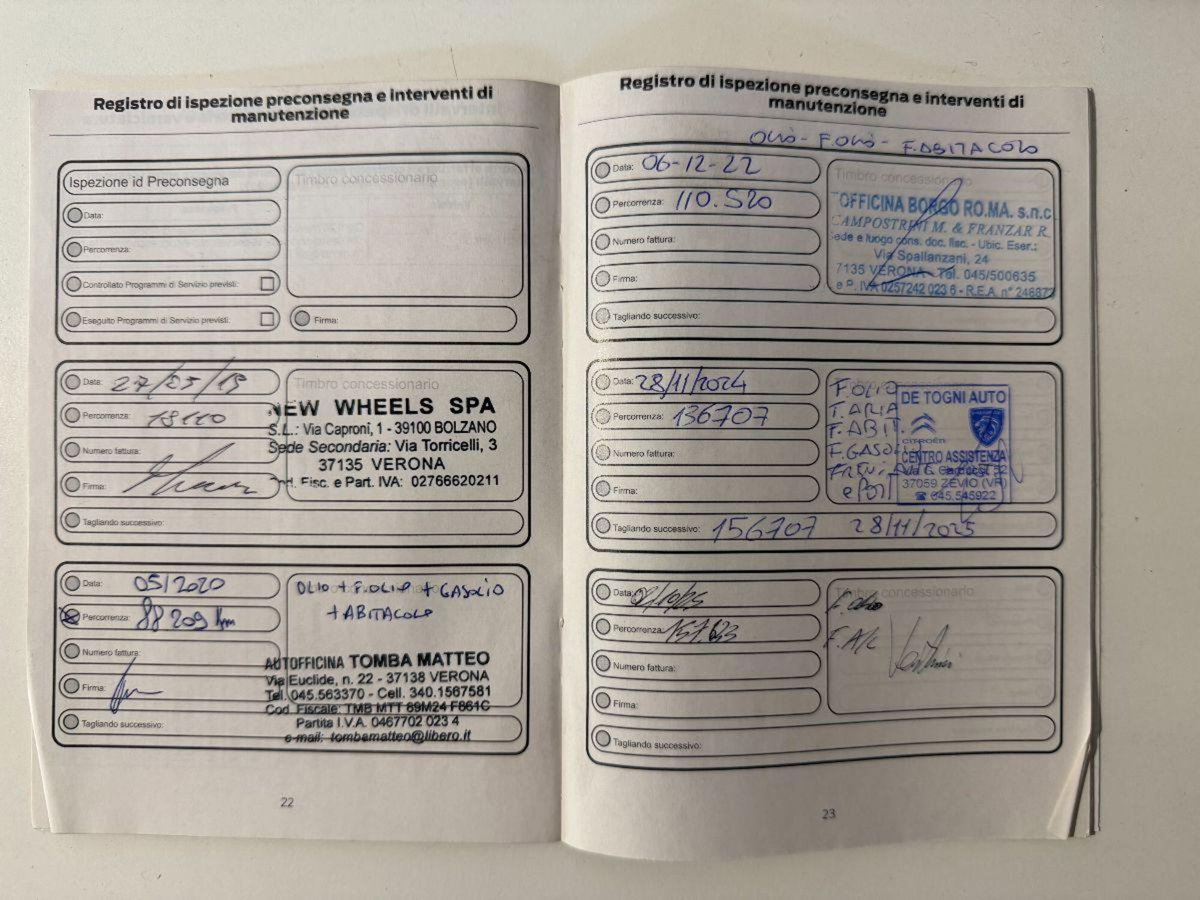 Registro di ispezione preconsegna e interventi di
manutenzione
Ispezione id Preconsegna
Data:
Percorrenza:
Controllato Programmi di Servizio previsti:
Eseguito Programmi di Servizio previsti:
Timbro concessionario
Firma:
Data: 27/05/19
Percorrenza:
Numero fattura:
Firma:
Tagliando successivo:
Timbro concessionario
NEW WHEELS SPA
S.L.: Via Caproni, 1 - 39100 BOLZANO
Sede Secondaria: Via Torricelli, 3
37135 VERONA
Cod. Fisc. e Part. IVA: 02766620211
Data: 05/2020
Percorrenza: 88209 Km
Numero fattura:
Firma:
Tagliando successivo:
OLIO + F.OLIO + GASOLIO
+ ABITACOLO
AUTOFFICINA TOMBA MATTEO
Via Euclide, n. 22 - 37138 VERONA
Tel. 045.563370 - Cell. 340.1567581
Cod. Fiscale: TMB MTT 89M24 F861C
Partita I.V.A. 0467702 023 4
e-mail: tombamatteo@libero.it
22
Registro di ispezione preconsegna e interventi di
manutenzione
OLIO - F.OLIO - F.ABITACOLO
Data: 06-12-22
Percorrenza: 110.520
Numero fattura:
Firma:
Tagliando successivo:
Timbro concessionario
OFFICINA BORGO RO.MA. s.n.c
CAMPOSTRINI M. & FRANZAR R.
Sede e luogo cons. doc. fisc. - Ubic. Eser.:
Via Spallanzani, 24
7135 VERONA - Tel. 045/500635
e P. IVA 0257242 023 6 - R.E.A. n° 246873
Data: 28/11/2024
Percorrenza: 136707
Numero fattura:
Firma:
Tagliando successivo: 156707 28/11/2025
F.OLIO
F.ARIA
F.ABIT.
F.GASOL
FRENI A
e POST
DE TOGNI AUTO
CITROËN
CENTRO ASSISTENZA
37059 ZEVIO (VR)
☎ 045.545922
Data:
Percorrenza:
Numero fattura:
Firma:
Tagliando successivo:
Timbro concessionario
F. olio
F. A/C
23